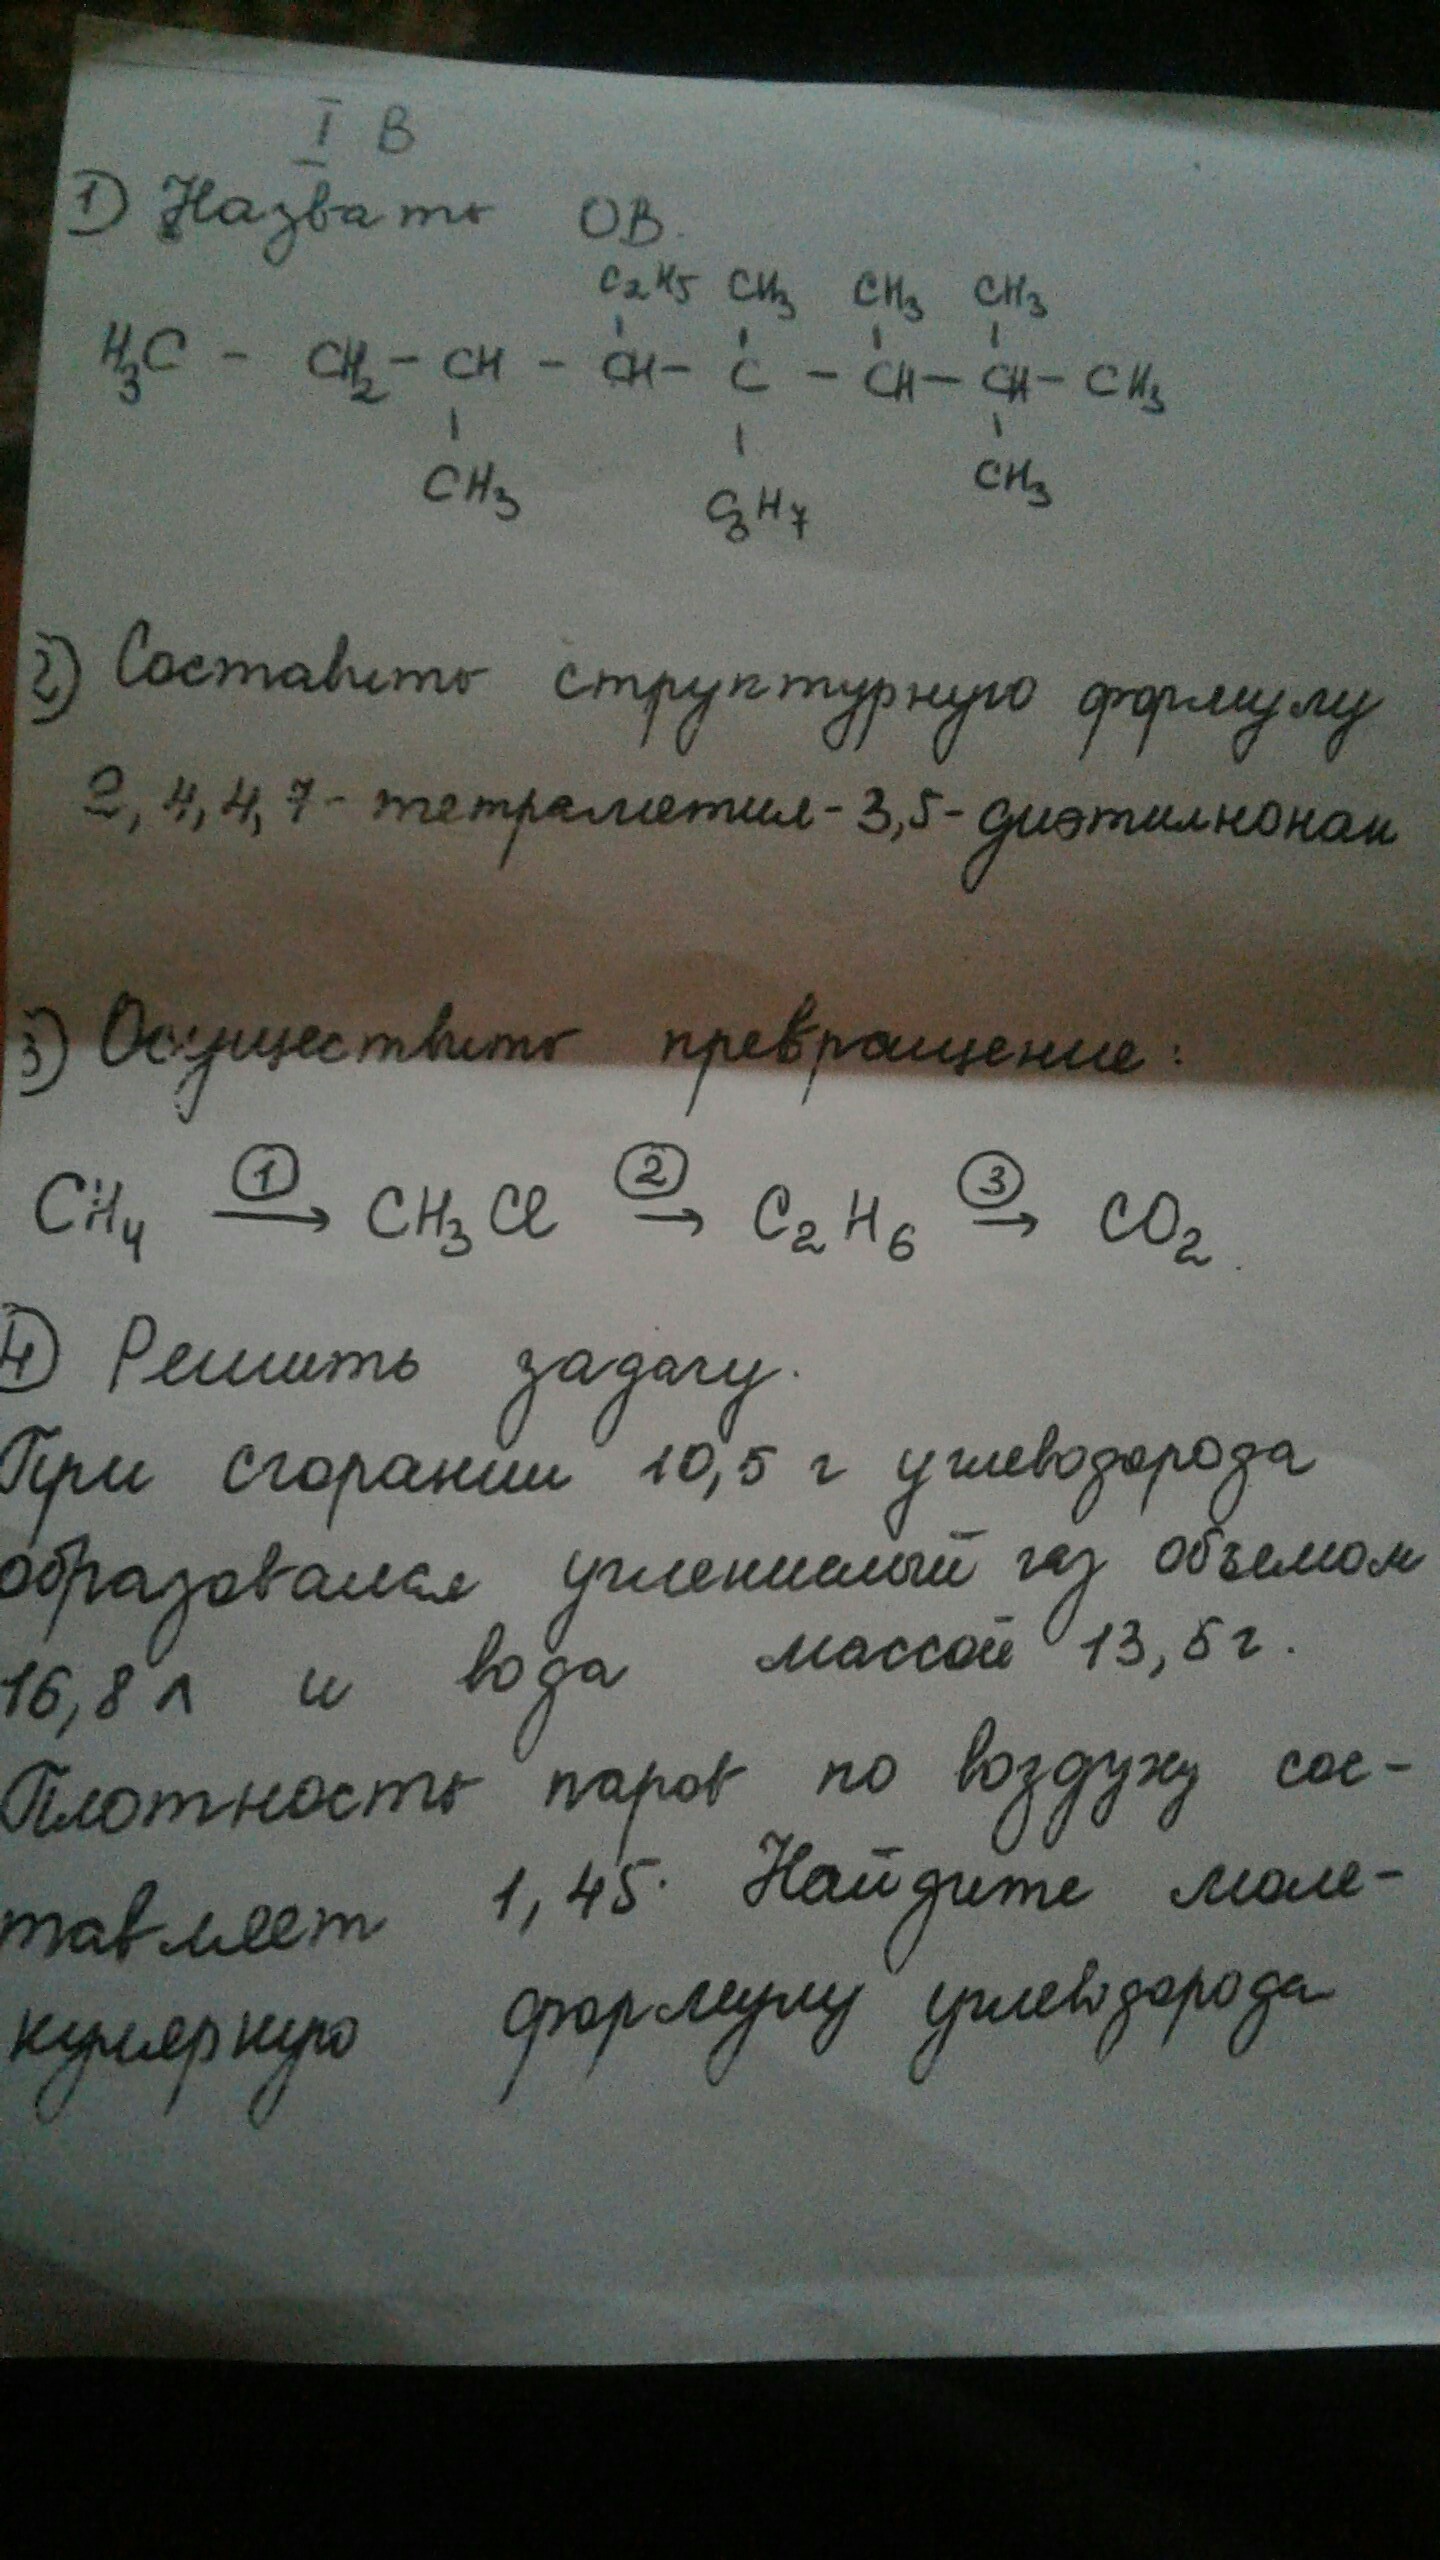 I В
1) Назвать ОВ.
C2H5 CH3 CH3 CH3
H3C - CH2 - CH - CH - C - CH - CH - CH3
CH3 C3H7 CH3
2) Составить структурную формулу
2,4,4,7-тетраметил-3,5-диэтилнонан
3) Осуществить превращение:
1 2 3
CH4 → CH3Cl → C2H6 → CO2.
4) Решить задачу.
При сгорании 10,5 г углеводорода
образовался углекислый газ объемом
16,8 л и вода массой 13,5 г.
Плотность паров по воздуху сос-
тавляет 1,45. Найдите моле-
кулярную формулу углеводорода